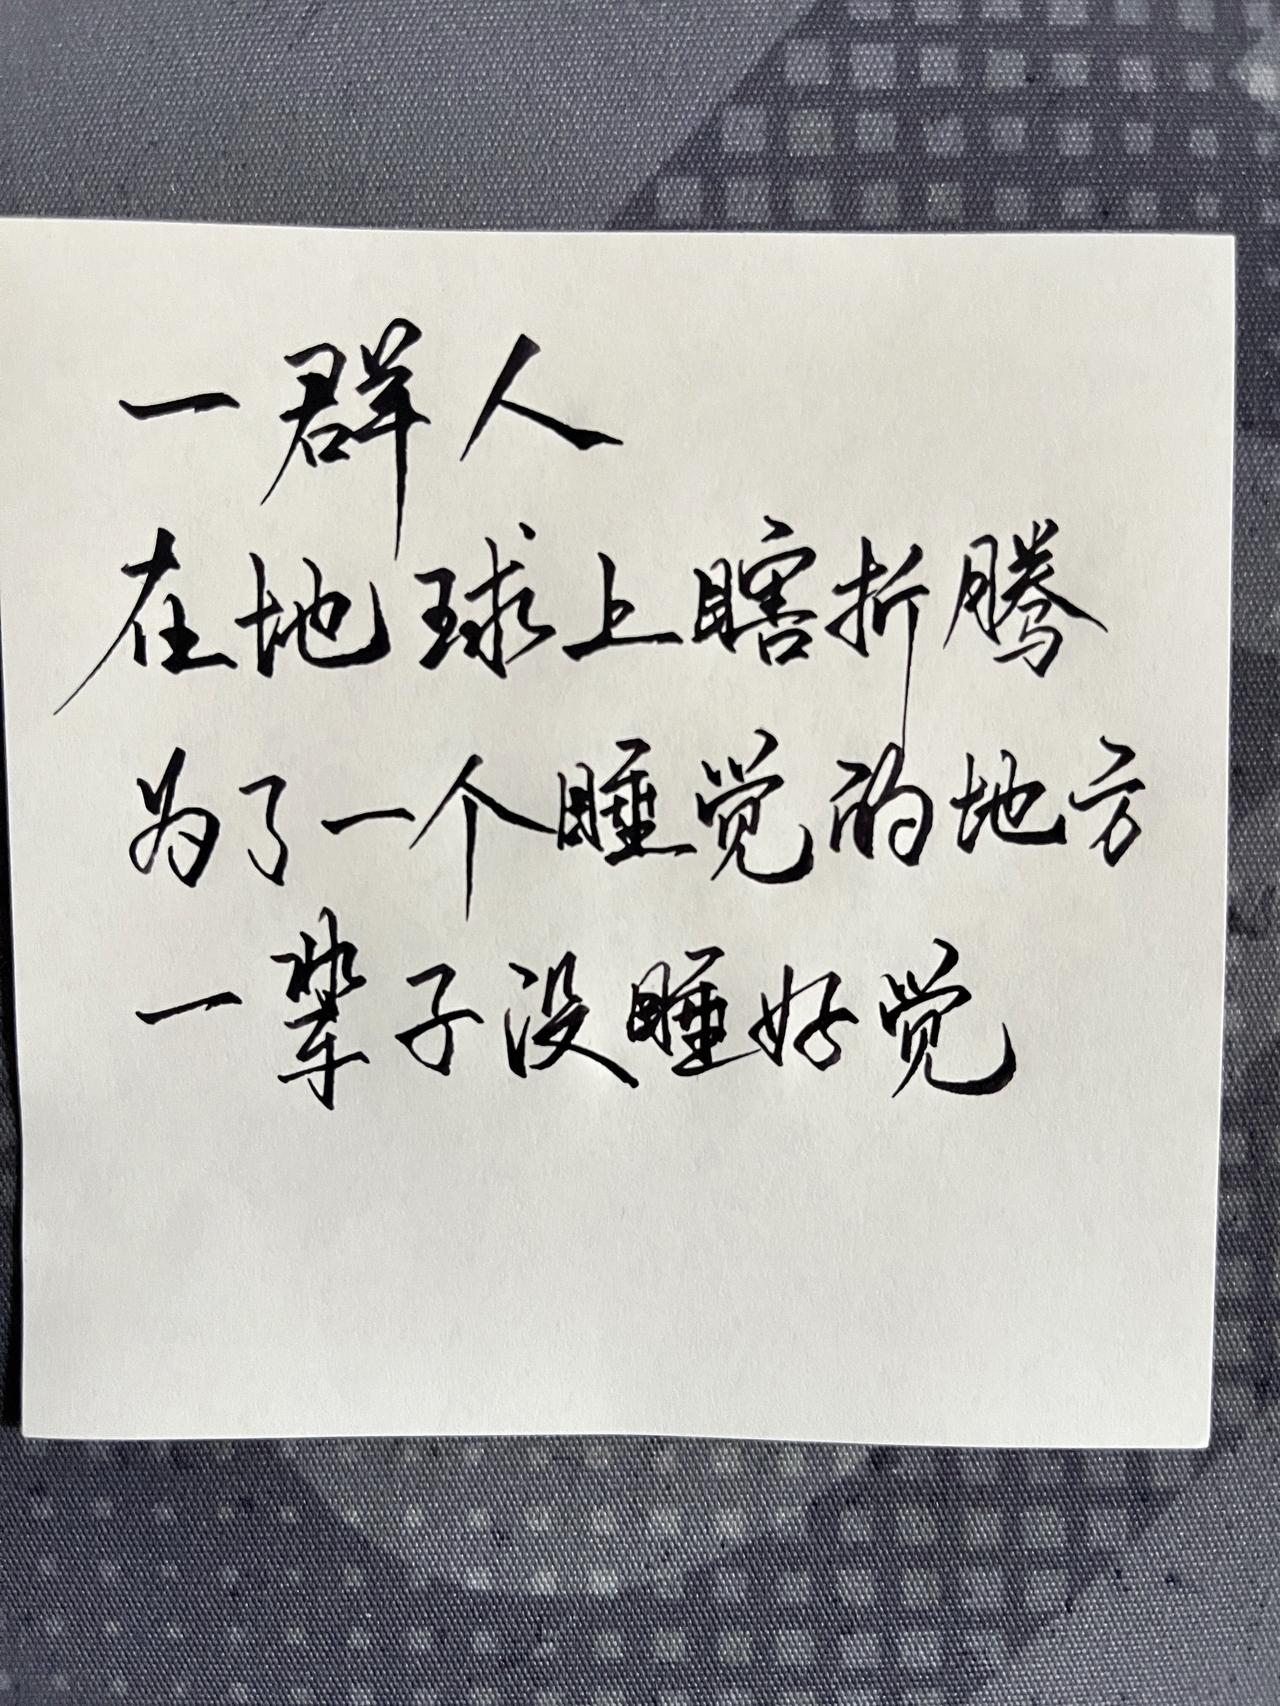 一群人
在地球上瞎折腾
为了一个睡觉的地方
一辈子没睡好觉